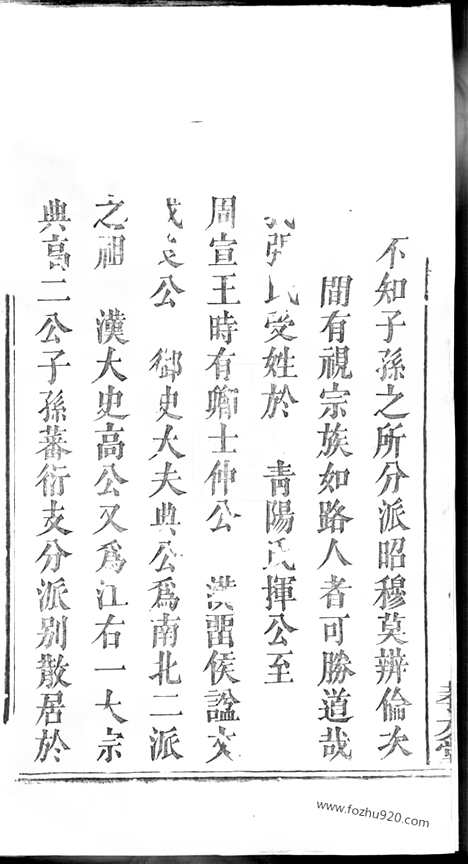 不知子孫之所分派昭穆莫辨倫次
間有視宗族如路人者可勝道哉
張氏受姓於 青陽氏揮公至
周宣王時有卿士仲公 漢畱侯諡文
成良公 御史大夫典公爲南北二派
之祖 漢大史高公又爲江右一大宗
典高二公子孫蕃衍支分派别散居於
http://www.fozhu920.com